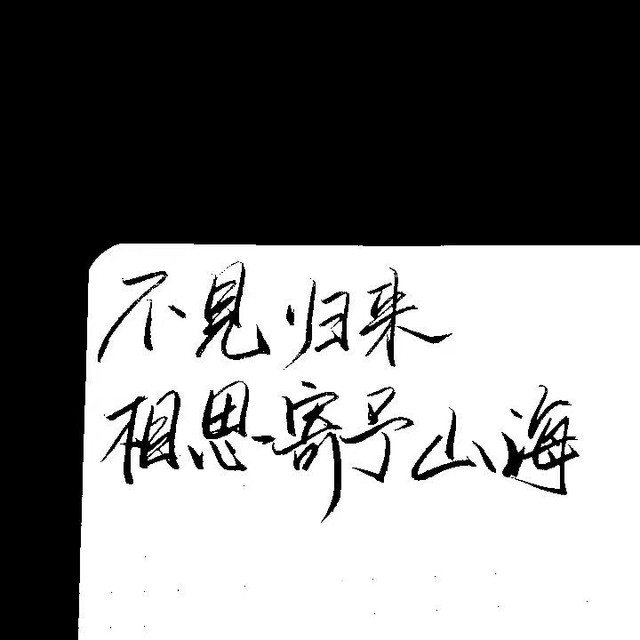 不見归来
相思寄予山海